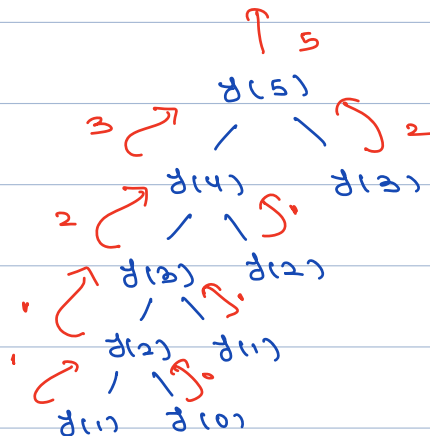 5
f(5)
3 2
f(4) f(3)
2 1
f(3) f(2)
1 1
f(2) f(1)
1 0
f(1) f(0)